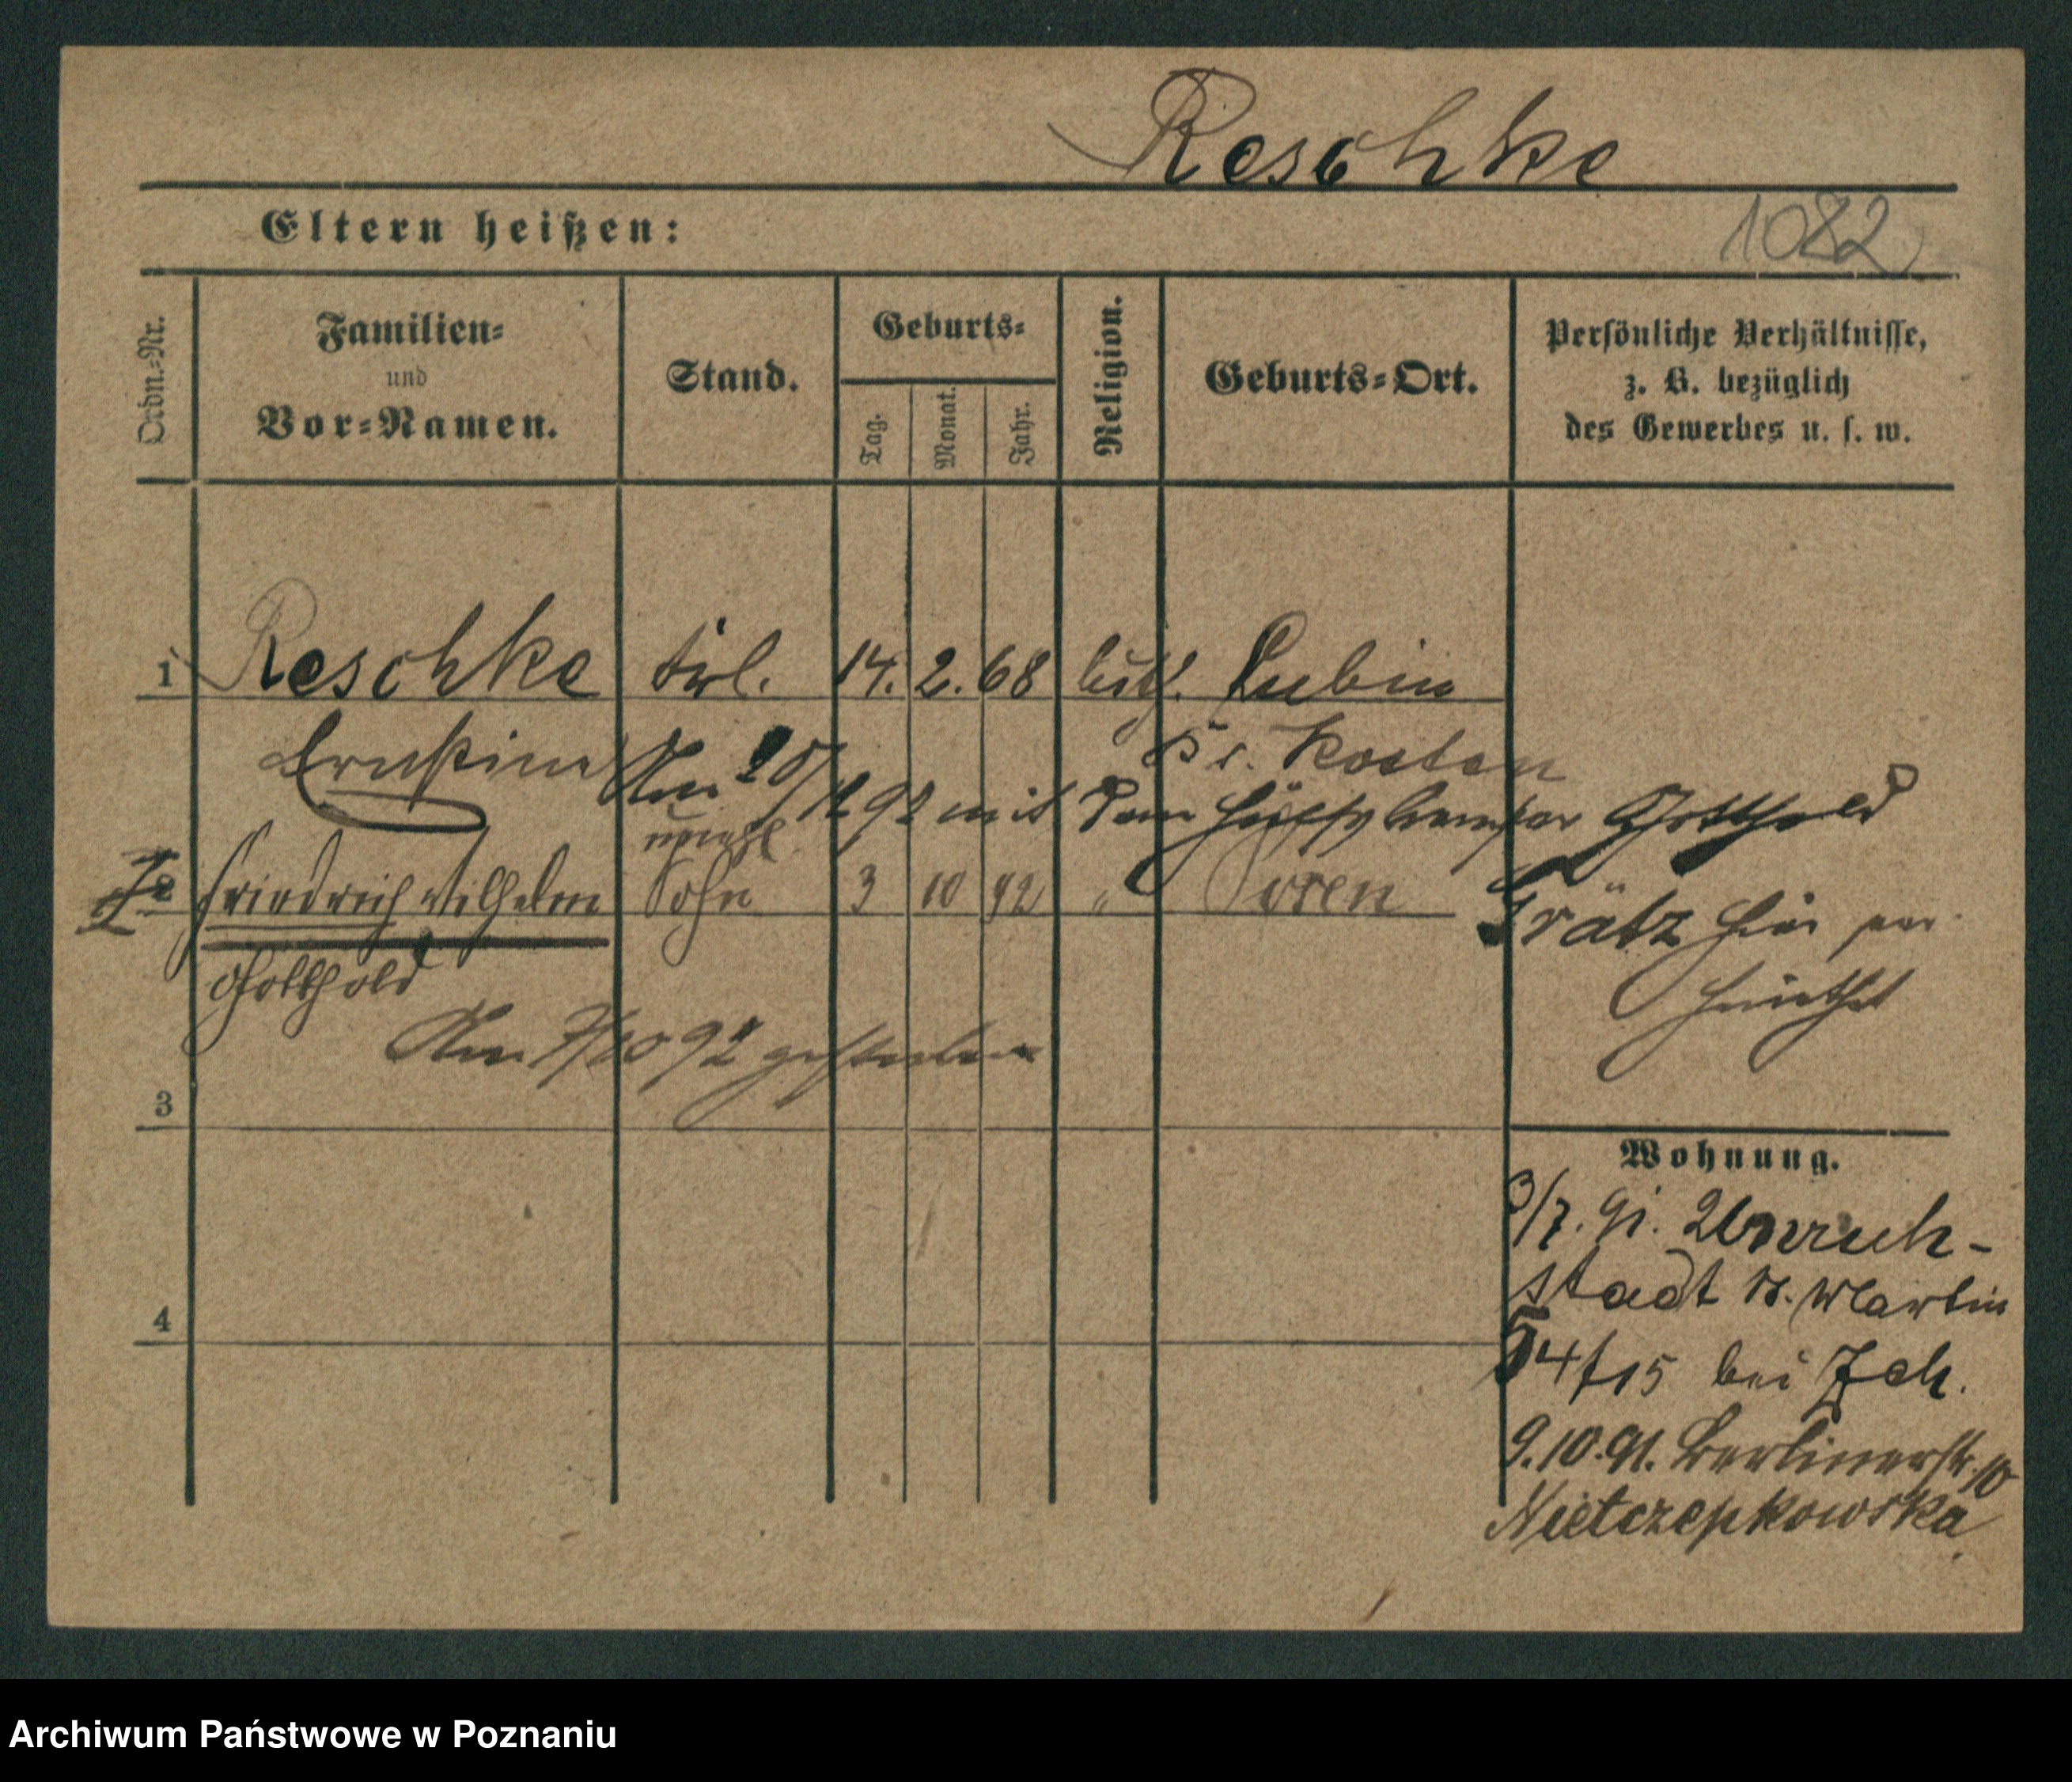 Reschke
Eltern heißen:
1082
Ordn.-Nr.
Familien-
und
Vor-Namen.
Stand.
Geburts-
Tag.
Monat.
Jahr.
Religion.
Geburts-Ort.
Persönliche Verhältnisse,
z. B. bezüglich
des Gewerbes u. s. w.
1 Reschke 14. 2. 68 Lubin
Ernstine Kr. Kosten
Am 20/12 92 mit dem Gotthold
unehl.
2 Friedrich Wilhelm Sohn 3 10 92 " Posen
Grätz hier ver
heirathet
Gotthold
Am 7/10 92 gestorben
3
Wohnung.
3/7. 91. Unruh-
stadt St. Martin
14/15 bei Zch.
4
9.10.91. Berlinerstr. 10
Nietczepkowska
Archiwum Państwowe w Poznaniu